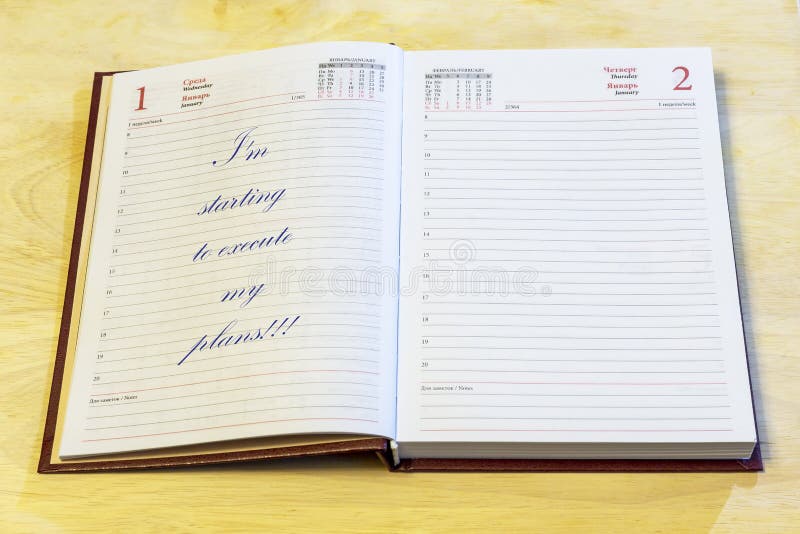 1
Среда
Wednesday
Январь
January
ЯНВАРЬ/JANUARY
1 неделя/week
1/365
8
9
10
11
12
13
14
15
16
17
18
19
20
I'm
starting
to execute
my
plans!!!
Для заметок / Notes
ФЕВРАЛЬ/FEBRUARY
Четверг
Thursday
Январь
January
2
2/364
1 неделя/week
8
9
10
11
12
13
14
15
16
17
18
19
20
Для заметок / Notes
dreamstime